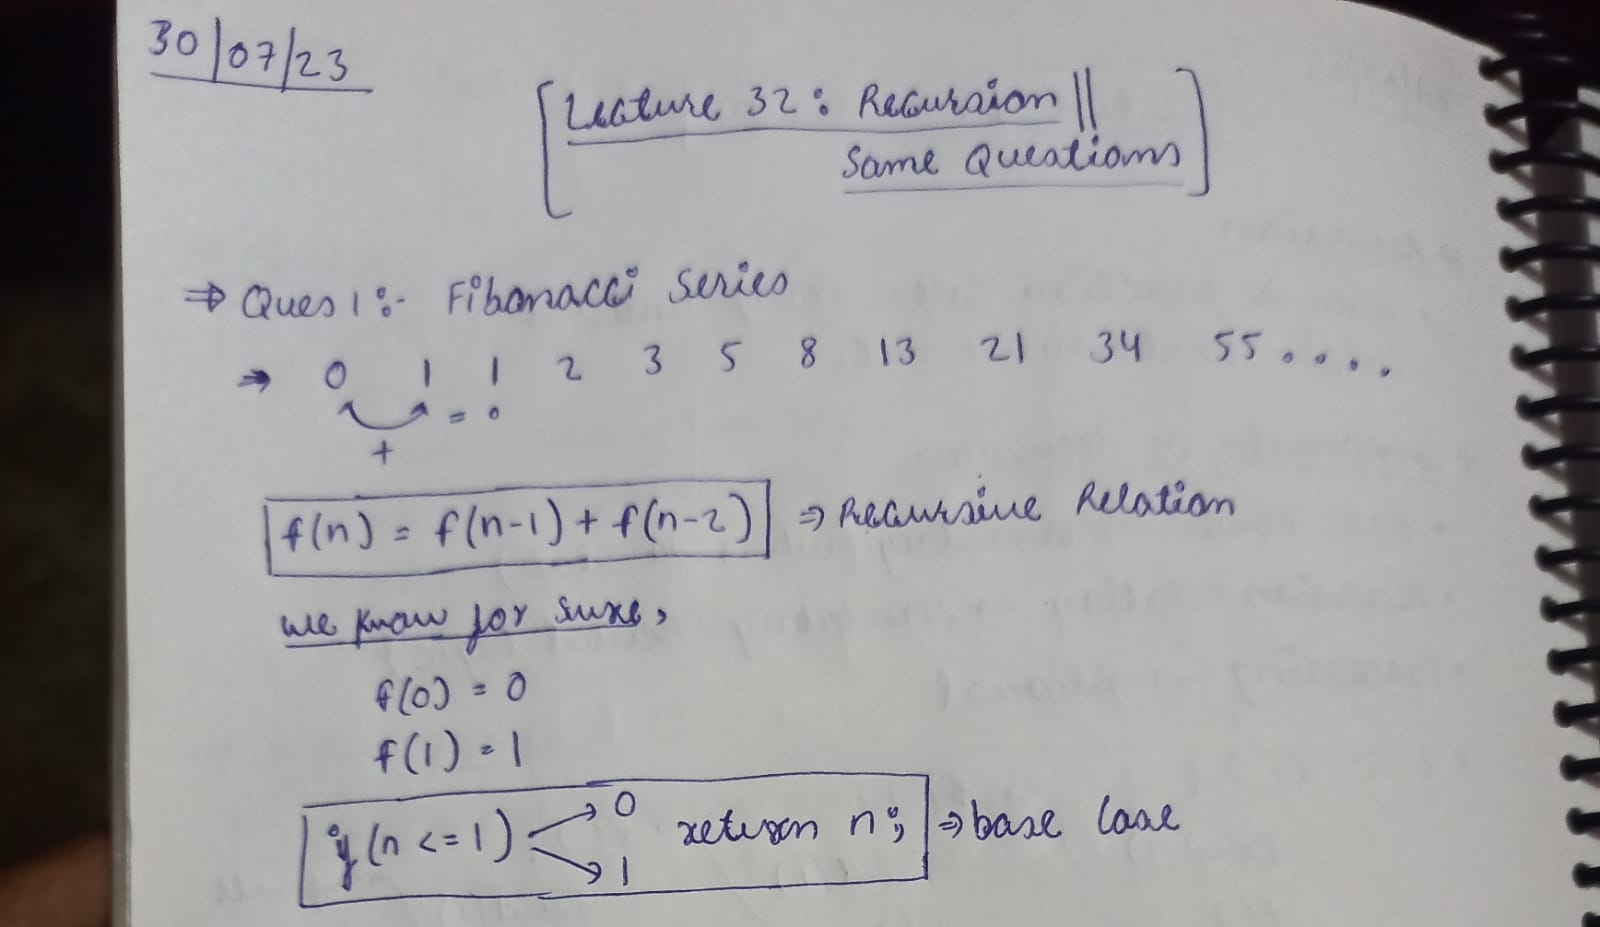 30/07/23
[Lecture 32: Recursion ||
Some Questions]
⇒ Ques 1:- Fibonacci Series
→ 0 1 1 2 3 5 8 13 21 34 55....
=
+
f(n) = f(n-1) + f(n-2) ⇒ Recursive Relation
we know for sure,
f(0) = 0
f(1) = 1
if (n <= 1) → 0 → 1 return n; ⇒ base case